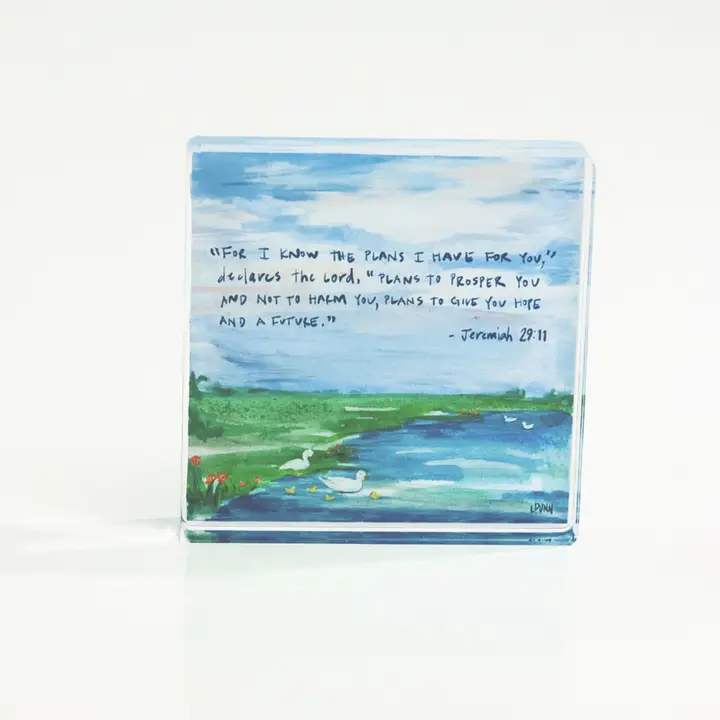 “FOR I KNOW THE PLANS I HAVE FOR YOU,”
declares the Lord, “PLANS TO PROSPER YOU
AND NOT TO HARM YOU, PLANS TO GIVE YOU HOPE
AND A FUTURE.”
- Jeremiah 29:11
LDUNN